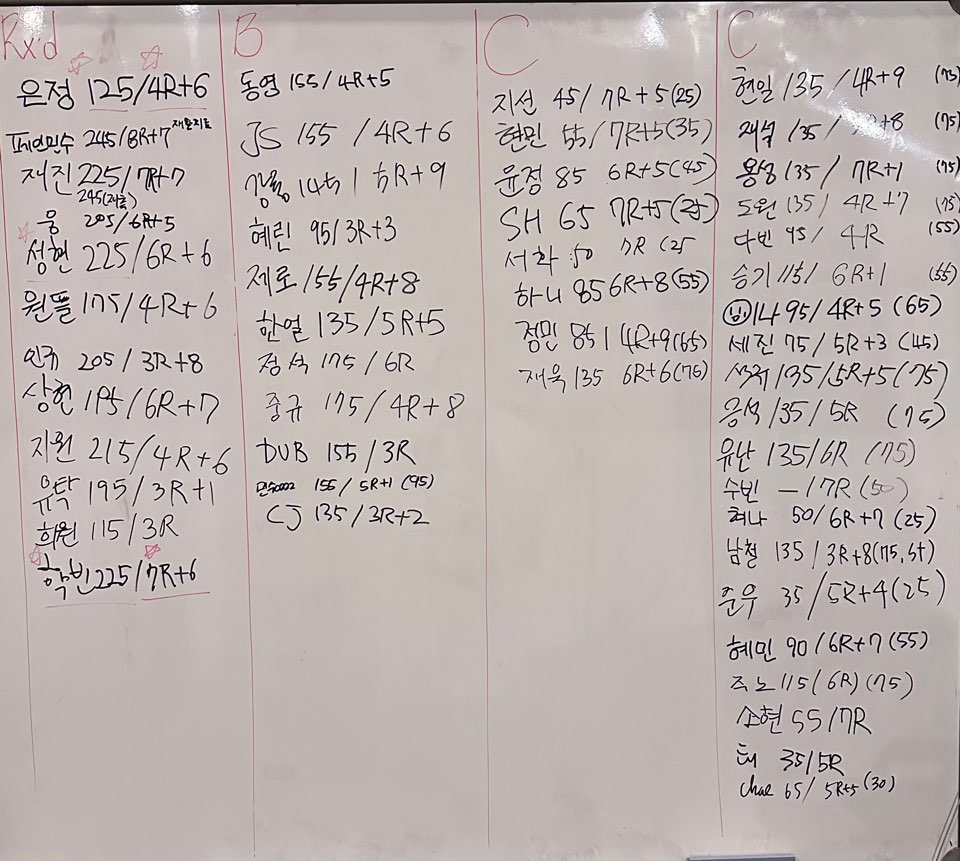 Rx'd
은정 125/4R+6
245/8R+7
재진 225/7R+7
245(재출)
웅 205/6R+5
성현 225/6R+6
원뜰 175/4R+6
인규 205/3R+8
상현 195/6R+7
지원 215/4R+6
유탁 195/3R+1
희원 115/3R
학빈 225/7R+6
B
동영 155/4R+5
JS 155/4R+6
강용 145/5R+9
혜린 95/3R+3
제로 155/4R+8
한얼 135/5R+5
정석 175/6R
중규 175/4R+8
DUB 155/3R
민수002 155/5R+1 (95)
CJ 135/3R+2
C
지선 45/7R+5(25)
현민 55/7R+5(35)
윤정 85 6R+5(45)
SH 65 7R+5
서화 50 7R (25
하니 85 6R+8(55)
정민 85/4R+9(65)
재욱 135 6R+6(75)
C
현일 135/4R+9 (75)
재석 135/ +8 (75)
용성 135/7R+1 (75)
도원 135/4R+7 (75)
다빈 95/4R (55)
승기 115/6R+1 (55)
나 95/4R+5 (65)
세진 75/5R+3 (45)
135/5R+5(75)
응석 135/5R (75)
유난 135/6R (75)
수빈 —/7R (50)
혀나 50/6R+7 (25)
남철 135/3R+8(75,
준우 35/5R+4(25)
혜민 90/6R+7(55)
주노 115(6R)(75)
소현 55/7R
태 35/5R
Chae 65/5R+5(30)